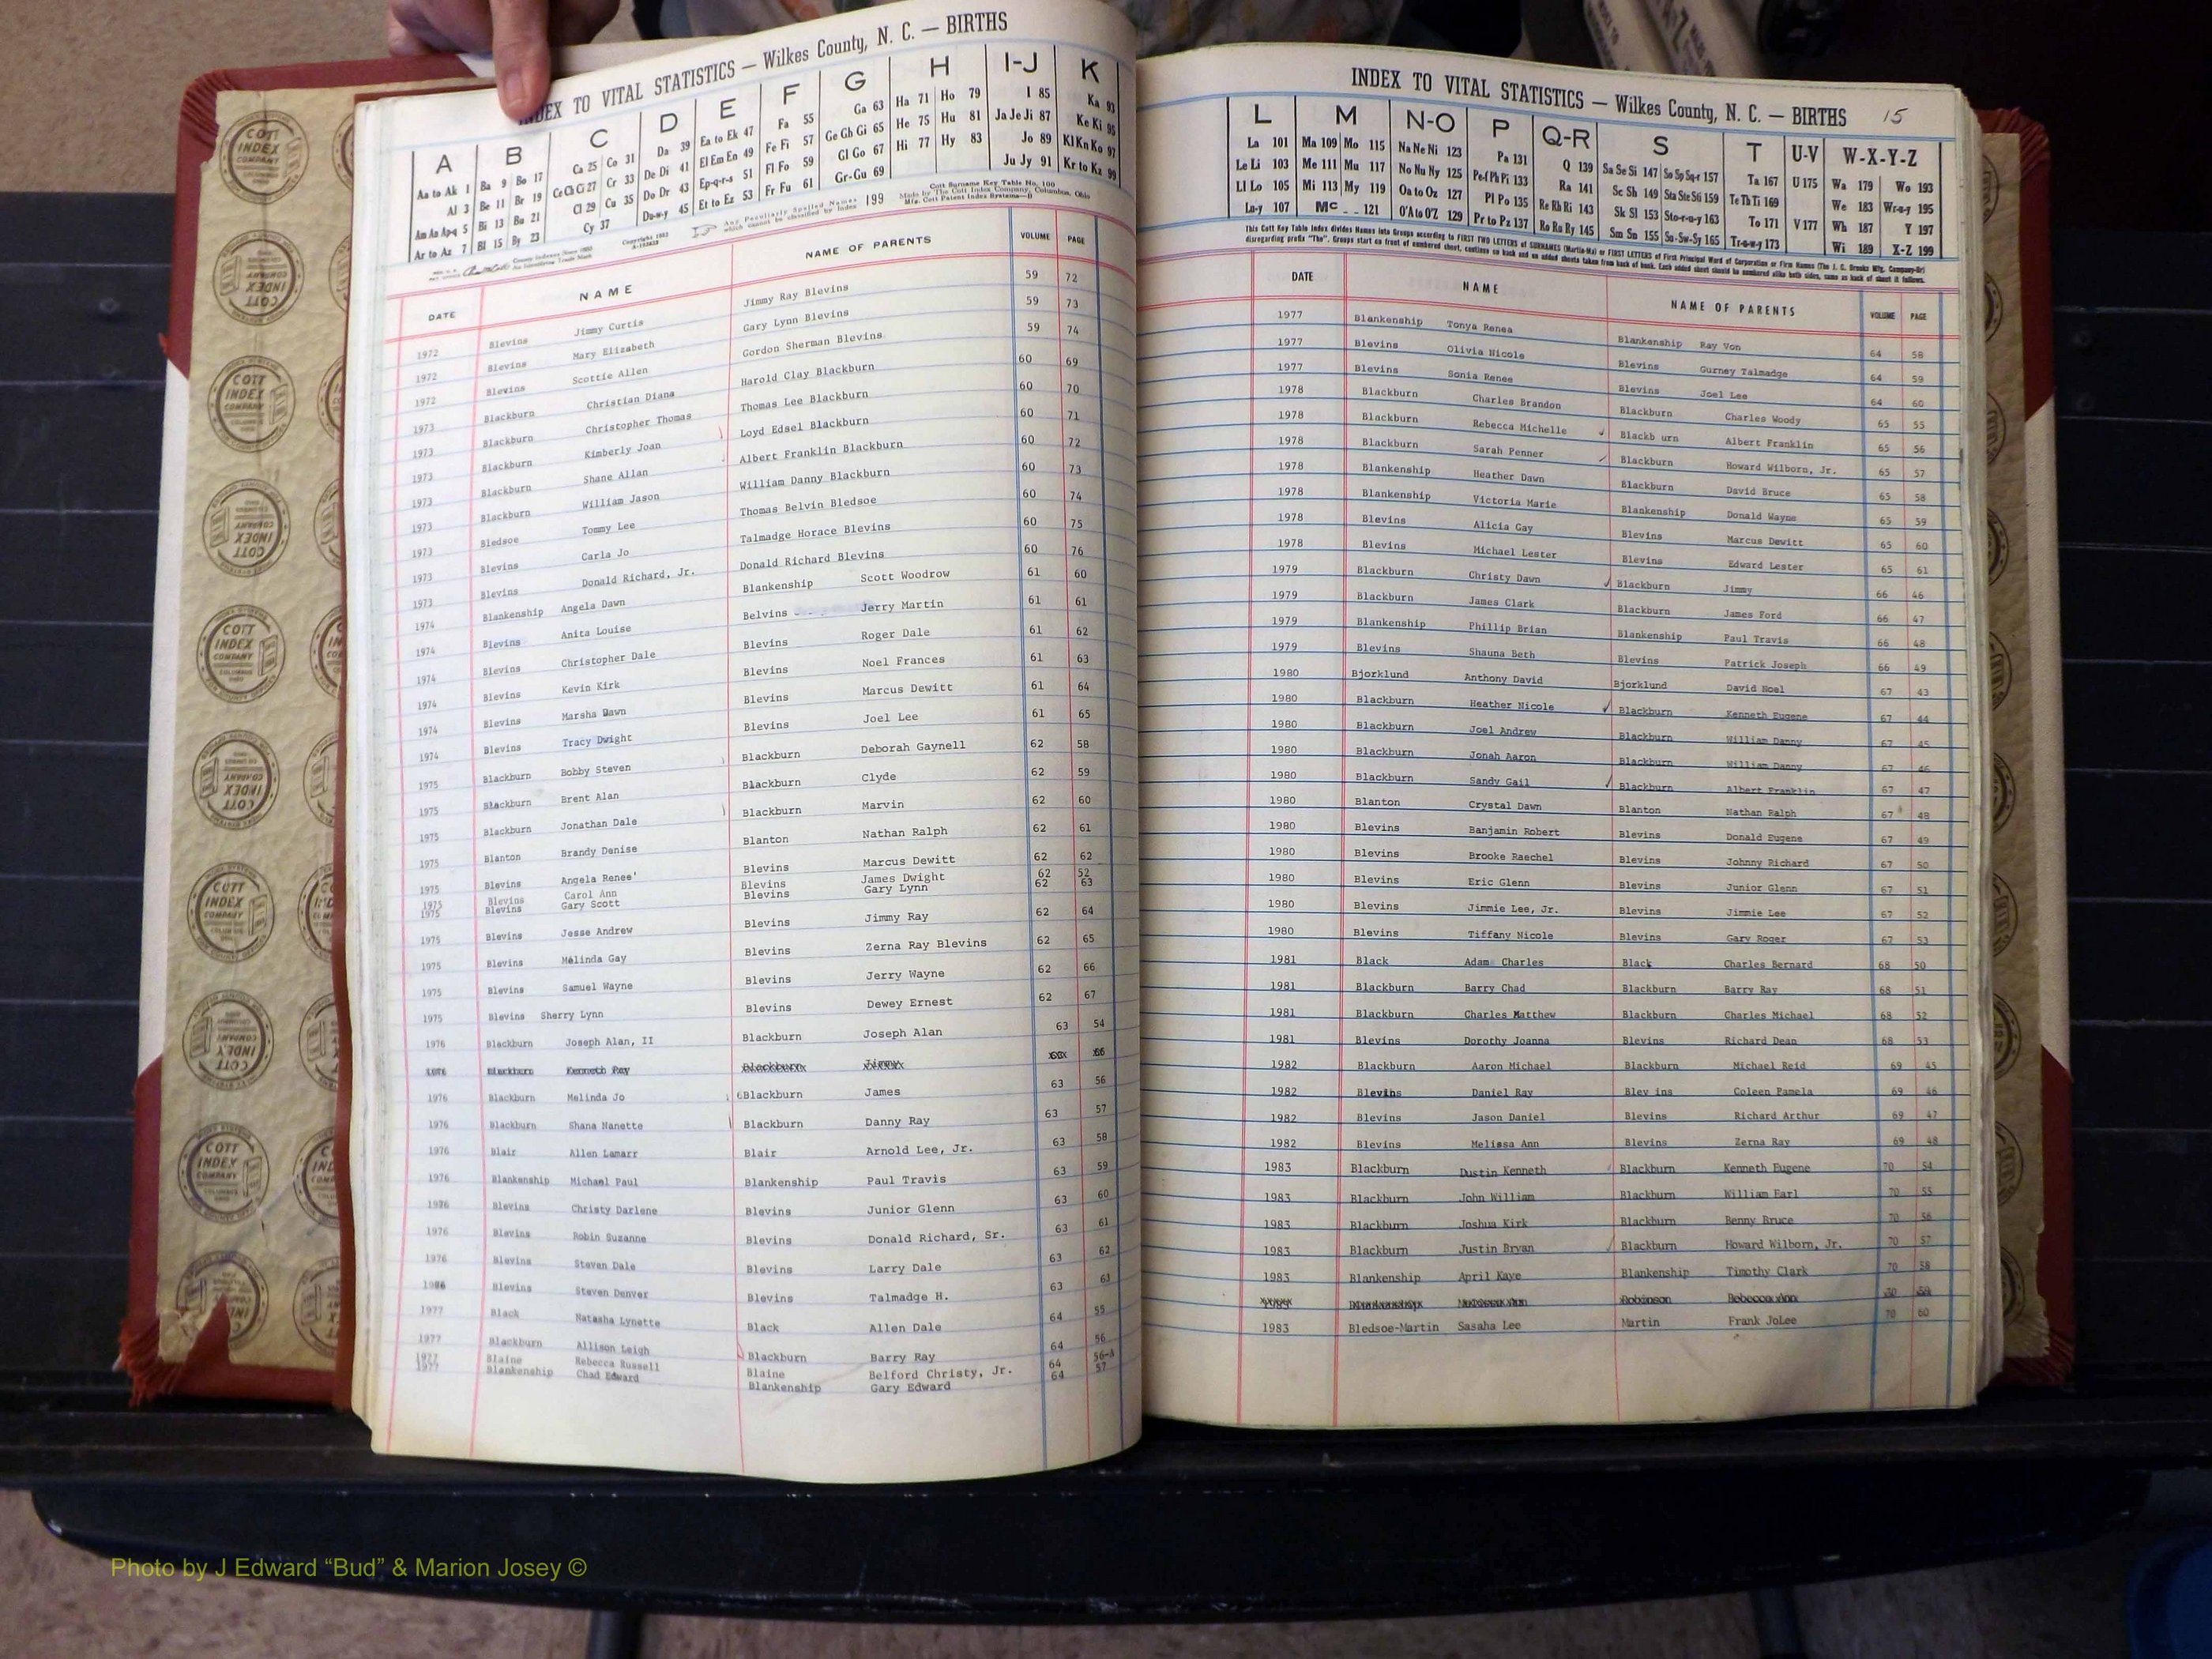 INDEX TO VITAL STATISTICS — Wilkes County, N. C. — BIRTHS
A B C D E F G H I-J K
Aa to Ak 1 Ba 9 Bo 17 Ca 25 Co 31 Da 39 Ea to Ek 47 Fa 55 Ga 63 Ha 71 Ho 79 I 85 Ka 93
Al 3 Be 11 Br 19 Ce Ch Ci 27 Cr 33 De Di 41 El Em En 49 Fe Fi 57 Ge Gh Gi 65 He 75 Hu 81 Ja Je Ji 87 Ke Ki 95
Am An Ap-q 5 Bi 13 Bu 21 Cl 29 Cu 35 Do Dr 43 Ep-q-r-s 51 Fl Fo 59 Gl Go 67 Hi 77 Hy 83 Jo 89 Kl Kn Ko 97
Ar to Az 7 Bl 15 By 23 Cy 37 Du-w-y 45 Et to Ez 53 Fr Fu 61 Gr-Gu 69 Ju Jy 91 Kr to Kz 99
Any Peculiarly Spelled Names which cannot be classified by Index 199
Cott Surname Key Table No. 100
Made by The Cott Index Company, Columbus, Ohio
DATE NAME NAME OF PARENTS VOLUME PAGE
1972 Blevins Jimmy Curtis Jimmy Ray Blevins 59 72
1972 Blevins Mary Elizabeth Gary Lynn Blevins 59 73
1972 Blevins Scottie Allen Gordon Sherman Blevins 59 74
1973 Blackburn Christian Diana Harold Clay Blackburn 60 69
1973 Blackburn Christopher Thomas Thomas Lee Blackburn 60 70
1973 Blackburn Kimberly Joan Loyd Edsel Blackburn 60 71
1973 Blackburn Shane Allan Albert Franklin Blackburn 60 72
1973 Blackburn William Jason William Danny Blackburn 60 73
1973 Bledsoe Tommy Lee Thomas Belvin Bledsoe 60 74
1973 Blevins Carla Jo Talmadge Horace Blevins 60 75
1973 Blevins Donald Richard, Jr. Donald Richard Blevins 60 76
1974 Blankenship Angela Dawn Blankenship Scott Woodrow 61 60
1974 Blevins Anita Louise Belvins Jerry Martin 61 61
1974 Blevins Christopher Dale Blevins Roger Dale 61 62
1974 Blevins Kevin Kirk Blevins Noel Frances 61 63
1974 Blevins Marsha Dawn Blevins Marcus Dewitt 61 64
1974 Blevins Tracy Dwight Blevins Joel Lee 61 65
1975 Blackburn Bobby Steven Blackburn Deborah Gaynell 62 58
1975 Blackburn Brent Alan Blackburn Clyde 62 59
1975 Blackburn Jonathan Dale Blackburn Marvin 62 60
1975 Blanton Brandy Denise Blanton Nathan Ralph 62 61
1975 Blevins Angela Renee' Blevins Marcus Dewitt 62 62
1975 Blevins Carol Ann Blevins James Dwight 62 52
1975 Blevins Gary Scott Blevins Gary Lynn 62 63
1975 Blevins Jesse Andrew Blevins Jimmy Ray 62 64
1975 Blevins Melinda Gay Blevins Zerna Ray Blevins 62 65
1975 Blevins Samuel Wayne Blevins Jerry Wayne 62 66
1975 Blevins Sherry Lynn Blevins Dewey Ernest 62 67
1976 Blackburn Joseph Alan, II Blackburn Joseph Alan 63 54
Blackburn Kenneth Ray Blackburn Jimmy
1976 Blackburn Melinda Jo Blackburn James 63 56
1976 Blackburn Shana Nanette Blackburn Danny Ray 63 57
1976 Blair Allen Lamarr Blair Arnold Lee, Jr. 63 58
1976 Blankenship Michael Paul Blankenship Paul Travis 63 59
1976 Blevins Christy Darlene Blevins Junior Glenn 63 60
1976 Blevins Robin Suzanne Blevins Donald Richard, Sr. 63 61
1976 Blevins Steven Dale Blevins Larry Dale 63 62
1976 Blevins Steven Denver Blevins Talmadge H. 63 63
1977 Black Natasha Lynette Black Allen Dale 64 55
1977 Blackburn Allison Leigh Blackburn Barry Ray 64 56
1977 Blaine Rebecca Russell Blaine Belford Christy, Jr. 64 56-A
1977 Blankenship Chad Edward Blankenship Gary Edward 64 57
INDEX TO VITAL STATISTICS — Wilkes County, N. C. — BIRTHS 15
L M N-O P Q-R S T U-V W-X-Y-Z
La 101 Ma 109 Mo 115 Na Ne Ni 123 Pa 131 Q 139 Sa Se Si 147 So Sp Sq-r 157 Ta 167 U 175 Wa 179 Wo 193
Le Li 103 Me 111 Mu 117 No Nu Ny 125 Pe-f Ph Pi 133 Ra 141 Sc Sh 149 Sta Ste Sti 159 Te Th Ti 169 We 183 Wr-u-y 195
Ll Lo 105 Mi 113 My 119 Oa to Oz 127 Pl Po 135 Re Rh Ri 143 Sk Sl 153 Sto-r-u-y 163 To 171 V 177 Wh 187 Y 197
Lu-y 107 Mc 121 O'A to O'Z 129 Pr to Pz 137 Ro Ru Ry 145 Sm Sn 155 Su-Sw-Sy 165 Tr-u-w-y 173 Wi 189 X-Z 199
This Cott Key Table Index divides Names into Groups according to FIRST TWO LETTERS of SURNAMES (Martin-Ma) or FIRST LETTERS of First Principal Word of Corporation or Firm Names (The J. C. Brooks Mfg. Company-Br)
disregarding prefix "The". Groups start on front of numbered sheet, continue on back and on added sheets taken from back of book. Each added sheet should be numbered alike both sides, same as back of sheet it follows.
DATE NAME NAME OF PARENTS VOLUME PAGE
1977 Blankenship Tonya Renea Blankenship Ray Von 64 58
1977 Blevins Olivia Nicole Blevins Gurney Talmadge 64 59
1977 Blevins Sonia Renee Blevins Joel Lee 64 60
1978 Blackburn Charles Brandon Blackburn Charles Woody 65 55
1978 Blackburn Rebecca Michelle Blackb urn Albert Franklin 65 56
1978 Blackburn Sarah Penner Blackburn Howard Wilborn, Jr. 65 57
1978 Blankenship Heather Dawn Blackburn David Bruce 65 58
1978 Blankenship Victoria Marie Blankenship Donald Wayne 65 59
1978 Blevins Alicia Gay Blevins Marcus Dewitt 65 60
1978 Blevins Michael Lester Blevins Edward Lester 65 61
1979 Blackburn Christy Dawn Blackburn Jimmy 66 46
1979 Blackburn James Clark Blackburn James Ford 66 47
1979 Blankenship Phillip Brian Blankenship Paul Travis 66 48
1979 Blevins Shauna Beth Blevins Patrick Joseph 66 49
1980 Bjorklund Anthony David Bjorklund David Noel 67 43
1980 Blackburn Heather Nicole Blackburn Kenneth Eugene 67 44
1980 Blackburn Joel Andrew Blackburn William Danny 67 45
1980 Blackburn Jonah Aaron Blackburn William Danny 67 46
1980 Blackburn Sandy Gail Blackburn Albert Franklin 67 47
1980 Blanton Crystal Dawn Blanton Nathan Ralph 67 48
1980 Blevins Banjamin Robert Blevins Donald Eugene 67 49
1980 Blevins Brooke Raechel Blevins Johnny Richard 67 50
1980 Blevins Eric Glenn Blevins Junior Glenn 67 51
1980 Blevins Jimmie Lee, Jr. Blevins Jimmie Lee 67 52
1980 Blevins Tiffany Nicole Blevins Gary Roger 67 53
1981 Black Adam Charles Black Charles Bernard 68 50
1981 Blackburn Barry Chad Blackburn Barry Ray 68 51
1981 Blackburn Charles Matthew Blackburn Charles Michael 68 52
1981 Blevins Dorothy Joanna Blevins Richard Dean 68 53
1982 Blackburn Aaron Michael Blackburn Michael Reid 69 45
1982 Blevins Daniel Ray Blev ins Coleen Pamela 69 46
1982 Blevins Jason Daniel Blevins Richard Arthur 69 47
1982 Blevins Melissa Ann Blevins Zerna Ray 69 48
1983 Blackburn Dustin Kenneth Blackburn Kenneth Eugene 70 54
1983 Blackburn John William Blackburn William Earl 70 55
1983 Blackburn Joshua Kirk Blackburn Benny Bruce 70 56
1983 Blackburn Justin Bryan Blackburn Howard Wilborn, Jr. 70 57
1983 Blankenship April Kaye Blankenship Timothy Clark 70 58
Robinson Rebecca Ann
1983 Bledsoe-Martin Sasaha Lee Martin Frank JoLee 70 60
Photo by J Edward “Bud” & Marion Josey ©